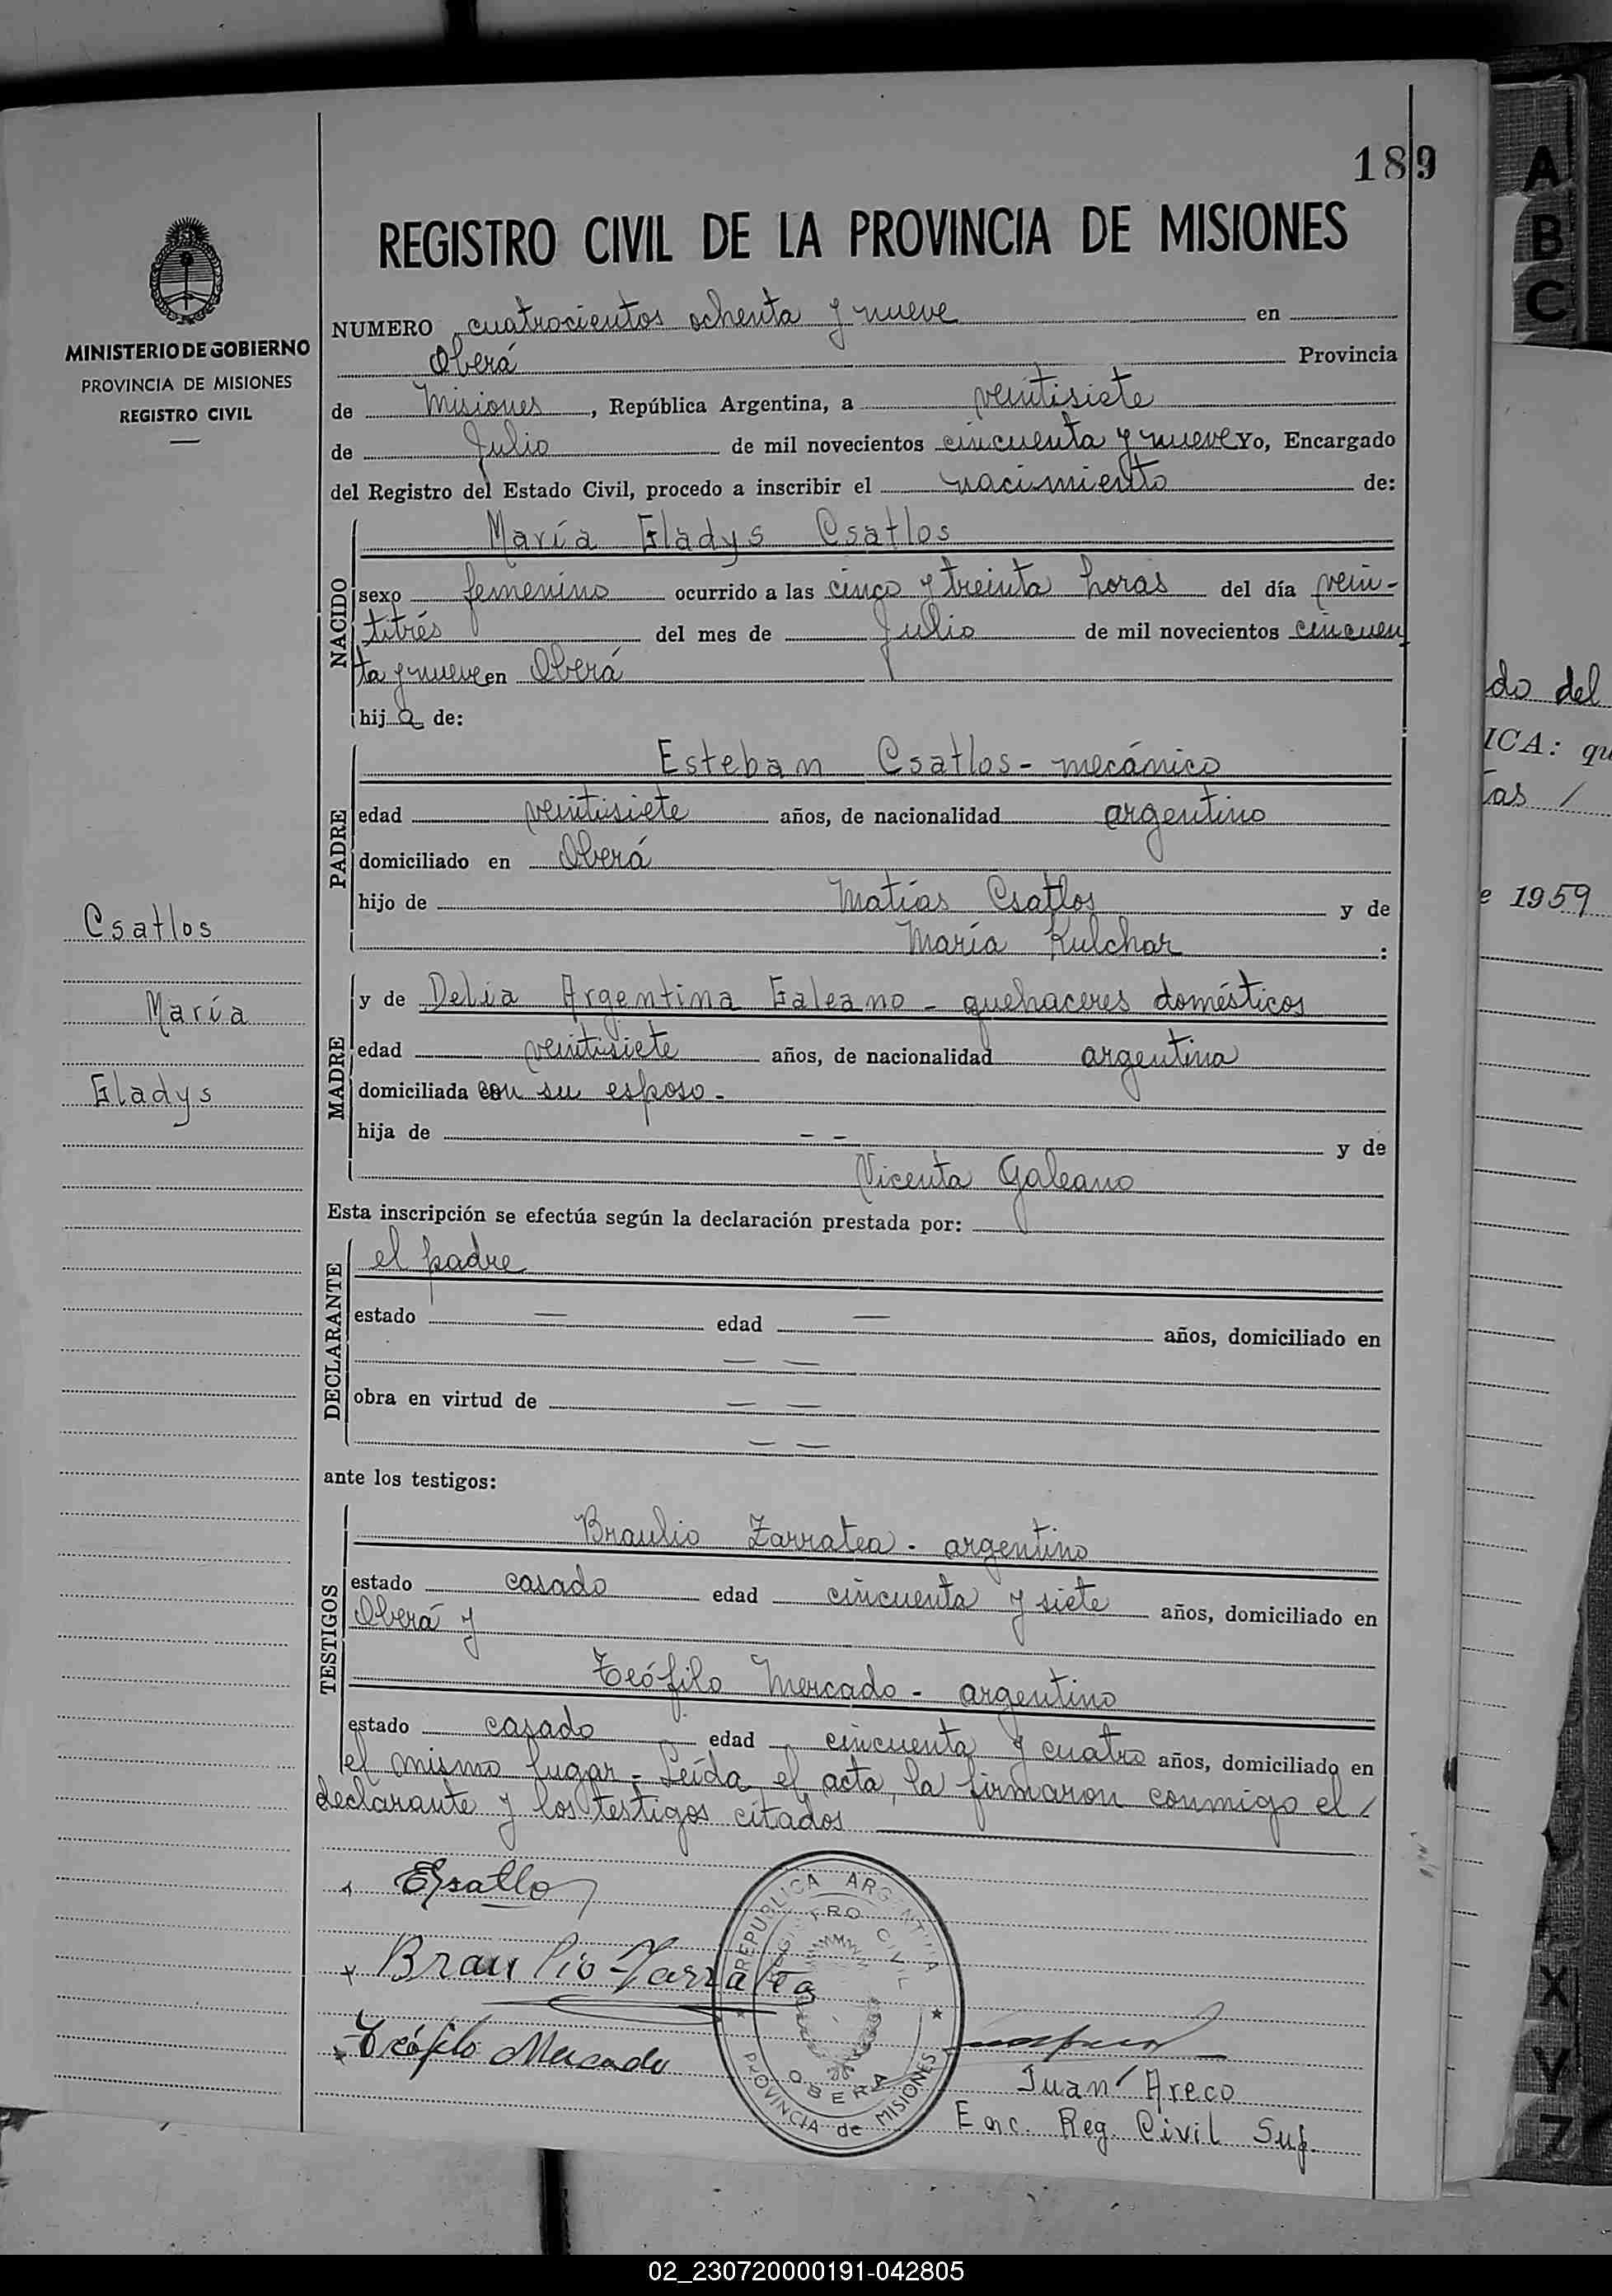 189
REGISTRO CIVIL DE LA PROVINCIA DE MISIONES
MINISTERIO DE GOBIERNO
PROVINCIA DE MISIONES
REGISTRO CIVIL
NUMERO cuatrocientos ochenta y nueve en
Oberá Provincia
de Misiones, República Argentina, a veintisiete
de Julio de mil novecientos cincuenta y nueve Yo, Encargado
del Registro del Estado Civil, procedo a inscribir el nacimiento de:
NACIDO
María Gladys Csatlos
sexo femenino ocurrido a las cinco y treinta horas del día vein-
titrés del mes de Julio de mil novecientos cincuen
ta y nueve en Oberá
hija de:
PADRE
Esteban Csatlos - mecánico
edad veintisiete años, de nacionalidad argentino
domiciliado en Oberá
hijo de Matías Csatlos y de
María Kulchar :
Csatlos
María
Gladys
MADRE
y de Delia Argentina Galeano - quehaceres domésticos
edad veintisiete años, de nacionalidad argentina
domiciliada con su esposo -
hija de - - y de
Vicenta Galeano
Esta inscripción se efectúa según la declaración prestada por:
DECLARANTE
el padre
estado — edad — años, domiciliado en
— —
obra en virtud de — —
— —
ante los testigos:
TESTIGOS
Braulio Zarratea - argentino
estado casado edad cincuenta y siete años, domiciliado en
Oberá y
Teófilo Mercado - argentino
estado casado edad cincuenta y cuatro años, domiciliado en
el mismo lugar - Leída el acta, la firmaron conmigo el /
declarante y los testigos citados
Braulio Zarratea
Teófilo Mercado
REPUBLICA ARGENTINA
REGISTRO CIVIL
OBERA
PROVINCIA de MISIONES
Juan Areco
Enc. Reg. Civil Sup.
A
B
C
do del
ICA: qu
tas /
e 1959
X
Y
Z
02_230720000191-042805